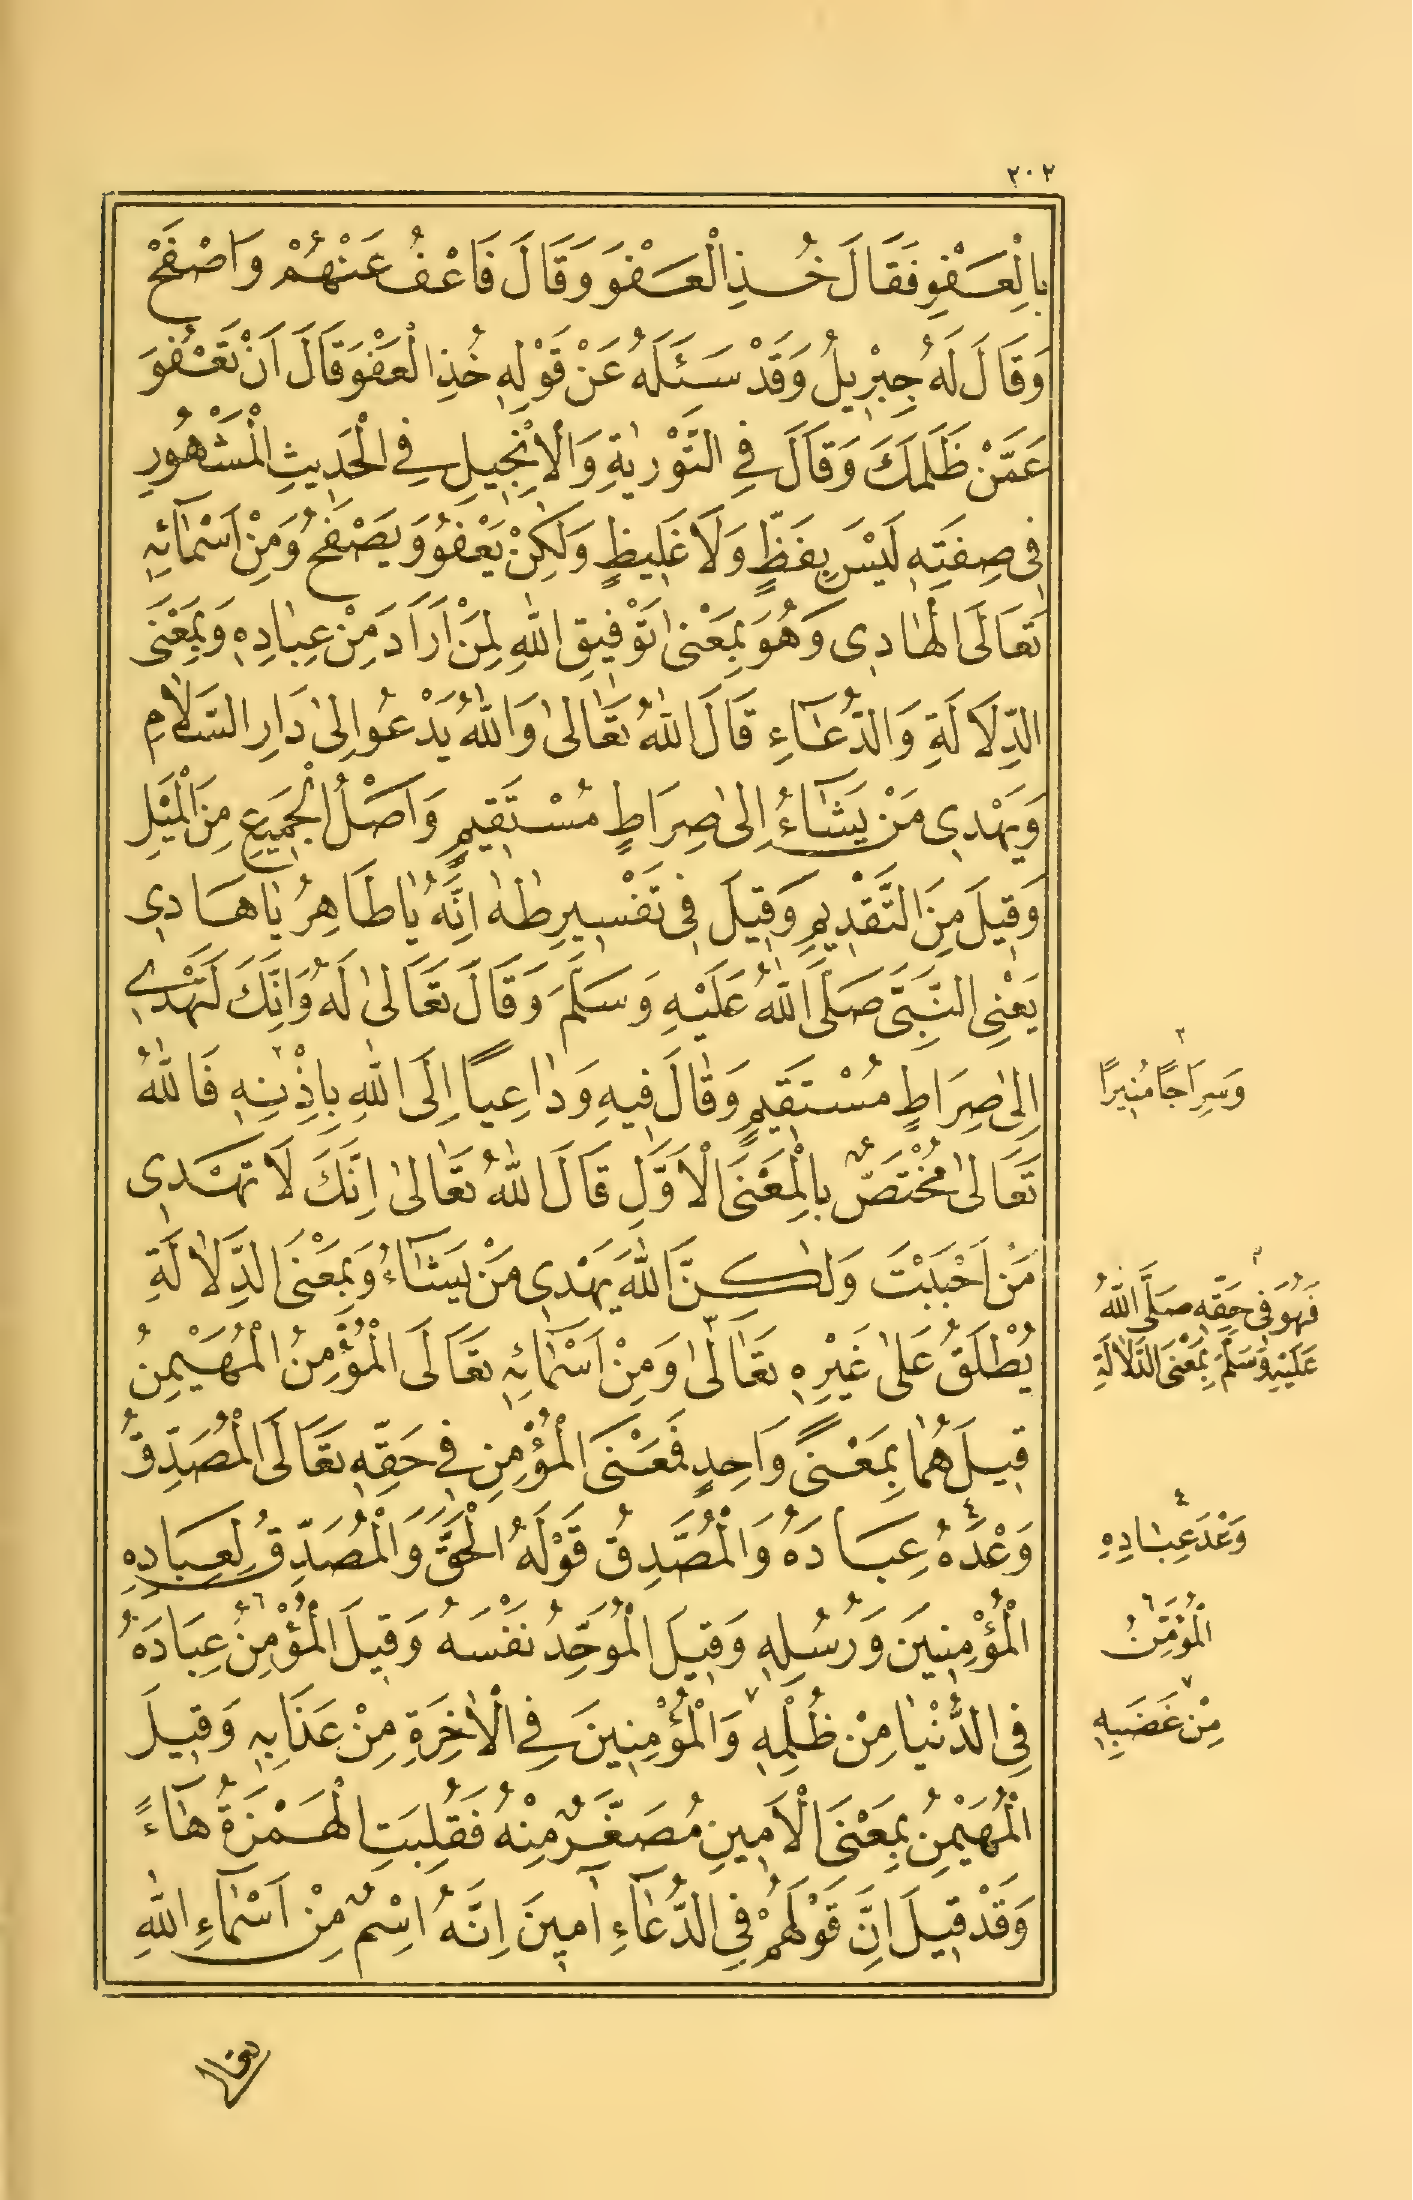 ٢٠٢
بِالْعَفْوِ فَقَالَ خُذِ الْعَفْوَ وَقَالَ فَاعْفُ عَنْهُمْ وَاصْفَحْ
وَقَالَ لَهُ جِبْرِيلُ وَقَدْ سَئَلَهُ عَنْ قَوْلِهِ خُذِ الْعَفْوَ قَالَ اَنْ تَعْفُوَ
عَمَّنْ ظَلَمَكَ وَقَالَ فِي التَّوْرٰيةِ وَالْاِنْجِيلِ فِي الْحَدِيثِ الْمَشْهُورِ
فِي صِفَتِهِ لَيْسَ بِفَظٍّ وَلَا غَلِيظٍ وَلٰكِنْ يَعْفُو وَيَصْفَحُ وَمِنْ اَسْمَائِهِ
تَعَالَى الْهَادِي وَهُوَ بِمَعْنىٰ تَوْفِيقِ اللهِ لِمَنْ اَرَادَ مِنْ عِبَادِهِ وَبِمَعْنَى
الدِّلَالَةِ وَالدُّعَآءِ قَالَ اللهُ تَعَالىٰ وَاللهُ يَدْعُو اِلىٰ دَارِ السَّلَامِ
وَيَهْدِي مَنْ يَشَآءُ اِلىٰ صِرَاطٍ مُسْتَقِيمٍ وَاَصْلُ الْجَمِيعِ مِنَ الْمَيْلِ
وَقِيلَ مِنَ التَّقْدِيمِ وَقِيلَ فِي تَفْسِيرِ طٰهٰ اِنَّهُ يَا طَاهِرُ يَا هَادِي
يَعْنِي النَّبِيَّ صَلَّى اللهُ عَلَيْهِ وَسَلَّمَ وَقَالَ تَعَالىٰ لَهُ وَاِنَّكَ لَتَهْدِي
اِلىٰ صِرَاطٍ مُسْتَقِيمٍ وَقَالَ فِيهِ وَدَاعِياً اِلَى اللهِ بِاِذْنِهِ ٢ فَاللهُ
وَسِرَاجًا مُنِيرًا ٢
تَعَالىٰ مُخْتَصٌّ بِالْمَعْنَى الْاَوَّلِ قَالَ اللهُ تَعَالىٰ اِنَّكَ لَا تَهْدِي
مَنْ اَحْبَبْتَ وَلٰكِنَّ اللهَ يَهْدِي مَنْ يَشَآءُ وَبِمَعْنَى الدِّلَالَةِ
يُطْلَقُ عَلىٰ غَيْرِهِ تَعَالىٰ ٣ وَمِنْ اَسْمَآئِهِ تَعَالَى الْمُؤْمِنُ الْمُهَيْمِنُ
٣ فَهُوَ فِي حَقِّهِ صَلَّى اللهُ
عَلَيْهِ وَسَلَّمَ بِمَعْنَى الدَّلَالَةِ
قِيلَ هُمَا بِمَعْنًى وَاحِدٍ فَمَعْنَى الْمُؤْمِنِ فِي حَقِّهِ تَعَالَى الْمُصَدِّقُ
وَعْدَهُ ٤ عِبَادَهُ وَالْمُصَدِّقُ قَوْلَهُ الْحَقَّ وَالْمُصَدِّقُ لِعِبَادِهِ
٤ وَعْدَ عِبَادِهِ
الْمُؤْمِنِينَ وَرُسُلِهِ وَقِيلَ الْمُوَحِّدُ نَفْسَهُ وَقِيلَ الْمُؤْمِنُ ٦ عِبَادَهُ
٦ الْمُؤَمِّنُ
فِي الدُّنْيَا مِنْ ظُلْمِهِ ٧ وَالْمُؤْمِنِينَ فِي الْاٰخِرَةِ مِنْ عَذَابِهِ وَقِيلَ
٧ مِنْ غَضَبِهِ
الْمُهَيْمِنُ بِمَعْنَى الْاَمِينِ مُصَغَّرٌ مِنْهُ فَقُلِبَتِ الْهَمْزَةُ هَاءً
وَقَدْ قِيلَ اِنَّ قَوْلَهُمْ فِي الدُّعَآءِ اٰمِينَ اِنَّهُ اسْمٌ مِنْ اَسْمَآءِ اللهِ
تعالى